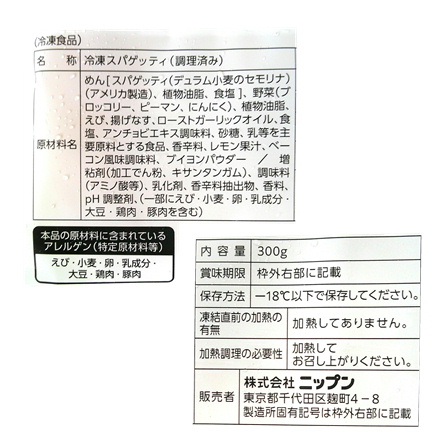 (冷凍食品)
名 称 冷凍スパゲッティ(調理済み)
原材料名
めん[スパゲッティ(デュラム小麦のセモリナ)
(アメリカ製造)、植物油脂、食塩]、野菜(ブ
ロッコリー、ピーマン、にんにく)、植物油脂、
えび、揚げなす、ローストガーリックオイル、食
塩、アンチョビエキス調味料、砂糖、乳等を主
要原料とする食品、香辛料、レモン果汁、ベー
コン風味調味料、ブイヨンパウダー / 増
粘剤(加工でん粉、キサンタンガム)、調味料
(アミノ酸等)、乳化剤、香辛料抽出物、香料、
pH調整剤、(一部にえび・小麦・卵・乳成分・
大豆・鶏肉・豚肉を含む)
本品の原材料に含まれている
アレルゲン(特定原材料等)
えび・小麦・卵・乳成分・
大豆・鶏肉・豚肉
内 容 量 300g
賞味期限 枠外右部に記載
保存方法 −18℃以下で保存してください。
凍結直前の加熱の
有無
加熱してありません。
加熱調理の必要性
加熱して
お召し上がりください。
販売者
株式会社 ニップン
東京都千代田区麹町4−8
製造所固有記号は枠外右部に記載